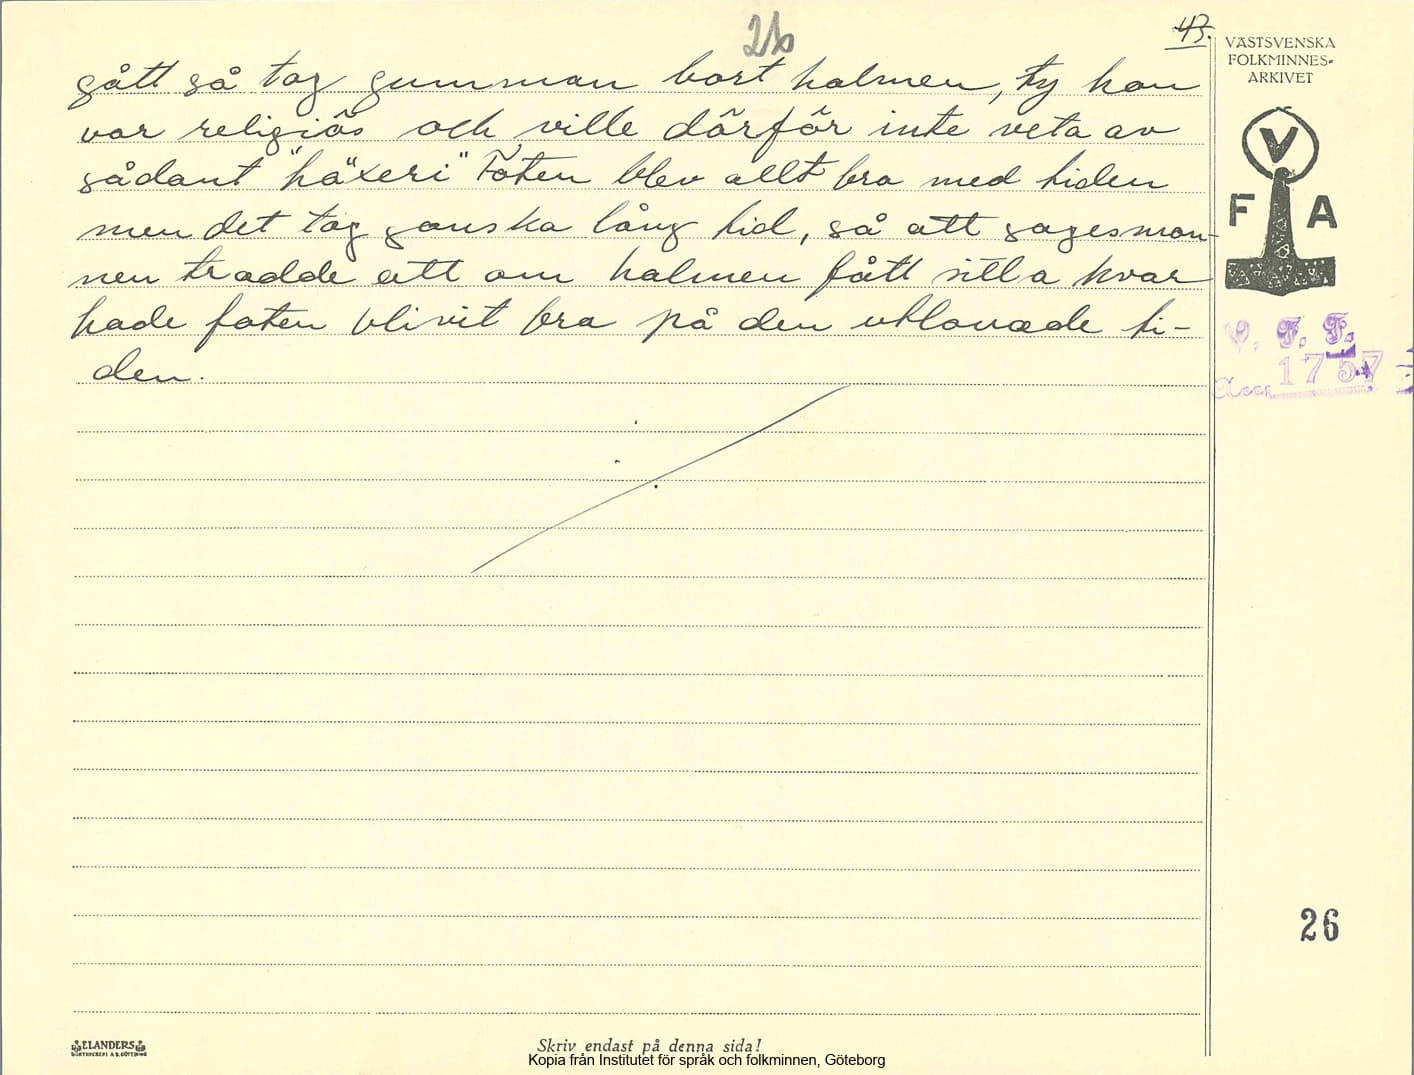 26
43.
VÄSTSVENSKA
FOLKMINNES-
ARKIVET
gått så tog gumman bort halmen, ty hon
var religiös och ville därför inte veta av
sådant "häxeri" Foten blev allt bra med tiden
men det tog ganska lång tid, så att sagesman-
nen trodde att om halmen fått sitta kvar
hade foten blivit bra på den utlovade ti-
den.
V
F A
V. F. F.
Acc. 1757
26
ELANDERS
Skriv endast på denna sida!
Kopia från Institutet för språk och folkminnen, Göteborg